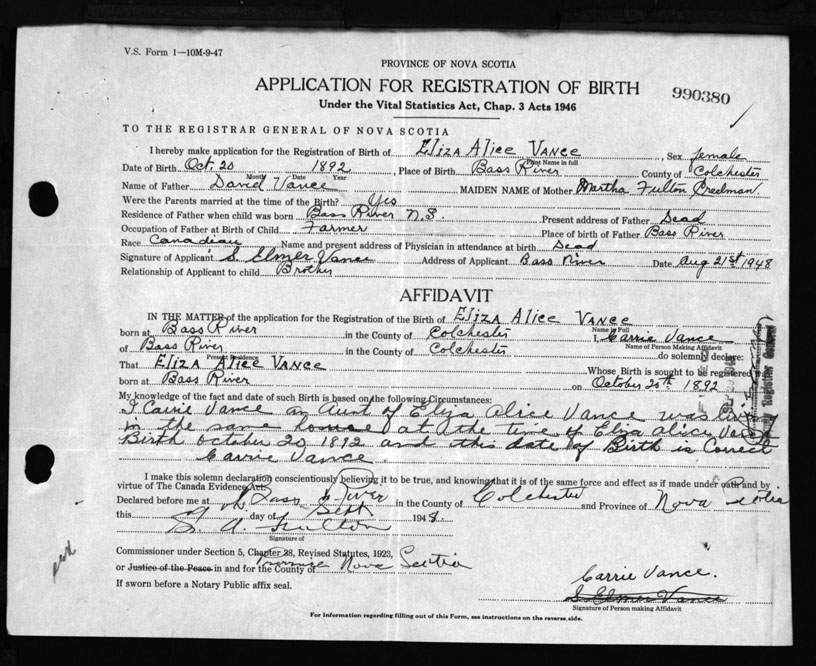 V.S. Form 1—10M-9-47
PROVINCE OF NOVA SCOTIA
APPLICATION FOR REGISTRATION OF BIRTH
990380
Under the Vital Statistics Act, Chap. 3 Acts 1946
TO THE REGISTRAR GENERAL OF NOVA SCOTIA
I hereby make application for the Registration of Birth of Eliza Alice Vance, Sex female
Print Name in full
Date of Birth Oct. 20 1892, Place of Birth Bass River County of Colchester
Month Date Year
Name of Father David Vance MAIDEN NAME of Mother Martha Fulton Creelman
Were the Parents married at the time of the Birth? Yes
Residence of Father when child was born Bass River N.S. Present address of Father Dead
Occupation of Father at Birth of Child Farmer Place of birth of Father Bass River
Race Canadian Name and present address of Physician in attendance at birth Dead
Signature of Applicant S Elmer Vance Address of Applicant Bass River Date Aug 21st 1948
Relationship of Applicant to child Brother
AFFIDAVIT
IN THE MATTER of the application for the Registration of the Birth of Eliza Alice Vance
Name in Full
born at Bass River in the County of Colchester I, Carrie Vance
Name of Person Making Affidavit
of Bass River in the County of Colchester do solemnly declare:
Present Residence
That Eliza Alice Vance Whose Birth is sought to be registered was
born at Bass River on October 20th 1892
My knowledge of the fact and date of such Birth is based on the following Circumstances:
I Carrie Vance an Aunt of Eliza Alice Vance was living
in the same house at the time of Eliza Alice Vance
Birth October 20 1892 and this date of Birth is Correct
Carrie Vance.
I make this solemn declaration conscientiously believing it to be true, and knowing that it is of the same force and effect as if made under oath and by
virtue of The Canada Evidence Act.
Declared before me at Bass River in the County of Colchester and Province of Nova Scotia
this day of Sept 1948.
Fulton
Signature of
Commissioner under Section 5, Chapter 38, Revised Statutes, 1923,
or Justice of the Peace in and for the County of Province Nova Scotia
If sworn before a Notary Public affix seal.
Carrie Vance.
S Elmer Vance
Signature of Person making Affidavit
For Information regarding filling out of this Form, see instructions on the reverse side.